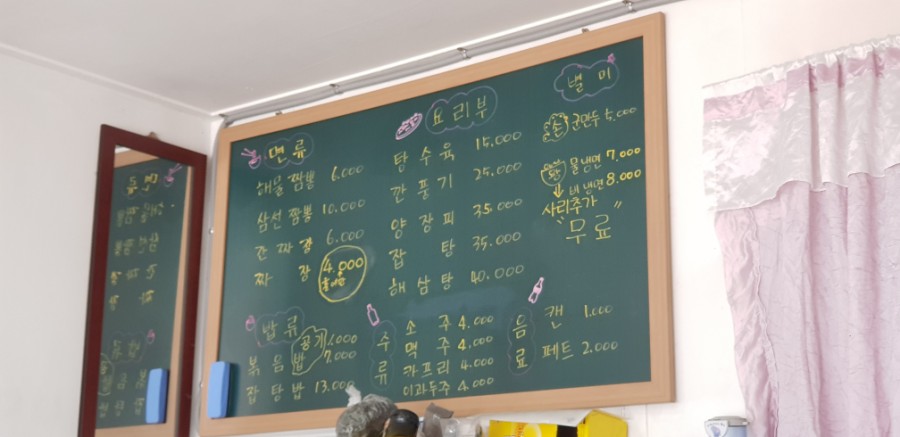 면류
해물짬뽕 6.000
삼선짬뽕 10.000
간짜장 6.000
짜장 4.000
밥류
공기 1.000
볶음밥 7.000
잡탕밥 13.000
요리부
탕수육 15.000
깐풍기 25.000
양장피 35.000
잡탕 35.000
해삼탕 40.000
주류
소주 4.000
맥주 4.000
카프리 4.000
이과두주 4.000
별미
손 군만두 5,000
물냉면 7.000
비 냉면 8.000
사리추가
"무료"
음료
캔 1.000
페트 2.000